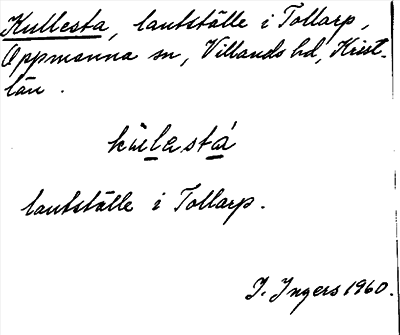 Kullesta, lantställe i Tollarp,
Oppmanna sn, Villands hd, Krist-
län.
kùlestá
lantställe i Tollarp.
I. Ingers 1960.